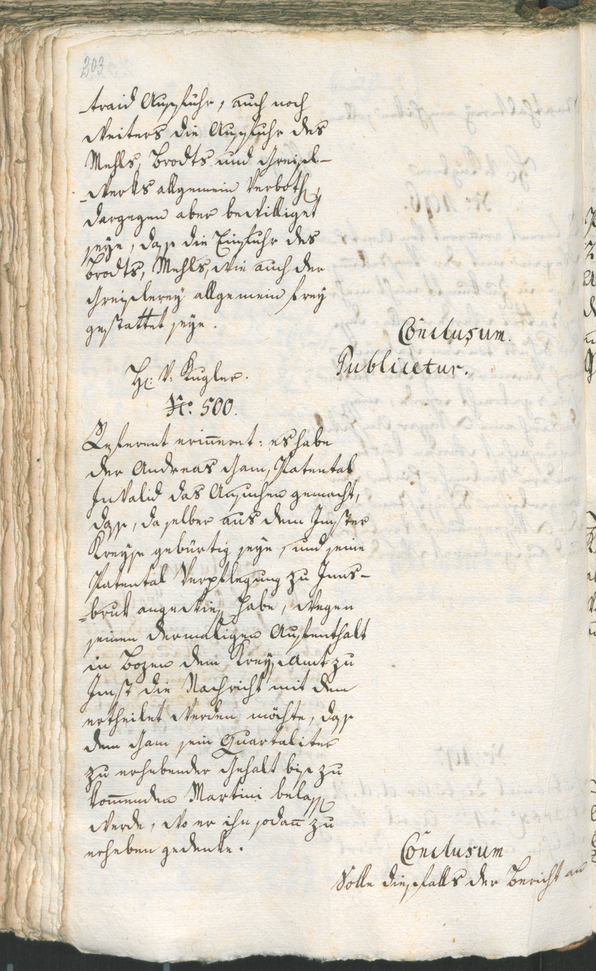 203
-traid Ausfuhr, auch noch
weiters die Ausfuhr des
Mehls, Brodts und Greisl-
-werks allgemein verbothen,
dargegen aber bewilliget
seye, dass die Einfuhr des
Brodts, Mehls, wie auch der
Greislerey allgemein frey
gestattet seye.
Conclusum.
Publicetur.
H: v: Kugler.
No: 500.
Referent erinnert: es habe
der Andreas Gam, Patental
Invalid das Ansuchen gemacht,
dass, da selber aus dem Imster
Kreyse gebürtig seye, und seine
Patental Verpflegung zu Inns-
-bruk angewiesen habe, wegen
seinen dermaligen Aufenthalt
in Bozen dem Kreisamt zu
Imst die Nachricht mit dem
ertheilet werden möchte, dass
dem Gam sein Quartaliter
zu erhebender Gehalt bis zu
kommenden Martini belassen
werde, wo er ihn sodann zu
erheben gedenke.
Conclusum
Solle diesfalls der Bericht an